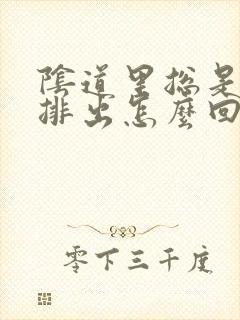 陰道里總是
排出怎麼回
零下三千度